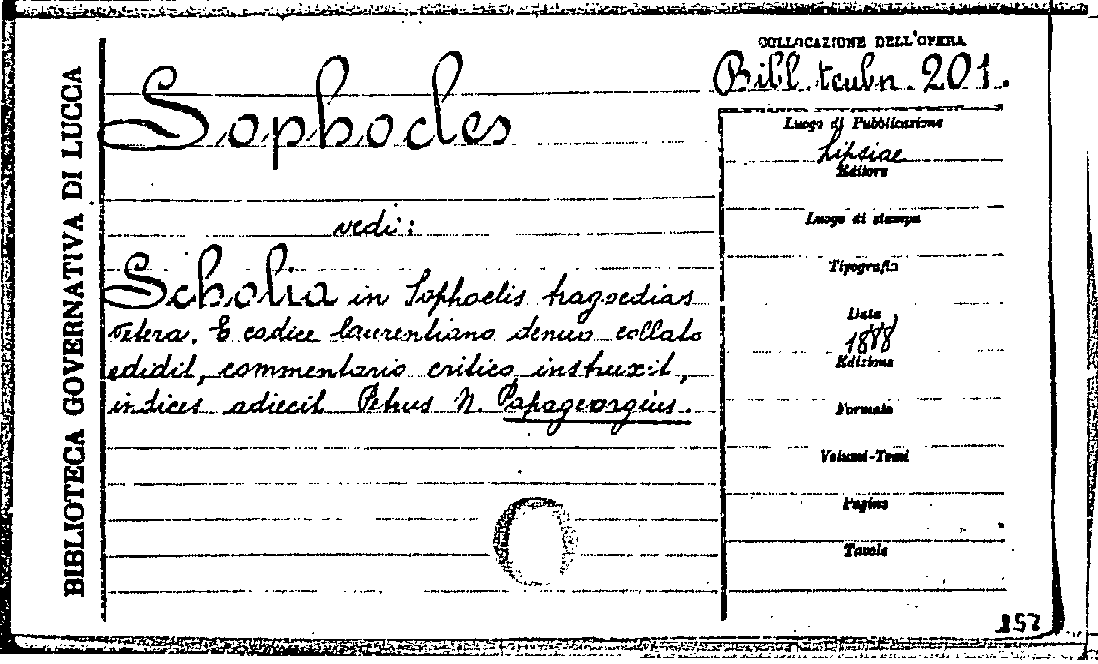 BIBLIOTECA GOVERNATIVA DI LUCCA
COLLOCAZIONE DELL'OPERA
Bibl. teubn. 201.
Sophocles
vedi:
Scholia in Sophoclis tragoedias
vetera. E codice laurentiano denuo collato
edidit, commentario critico instruxit,
indices adiecit Petrus N. Papageorgius.
Luogo di Pubblicazione
Lipsiae
Editore
Luogo di stampa
Tipografia
Data
1888
Edizione
Formato
Volumi-Tomi
Pagine
Tavole
157